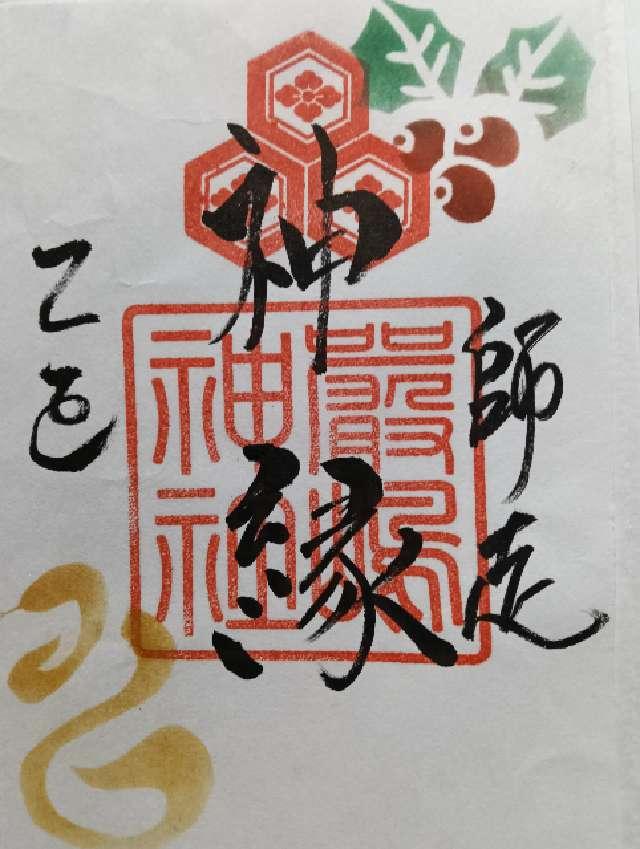 師走
神縁
乙巳
嚴島
神社